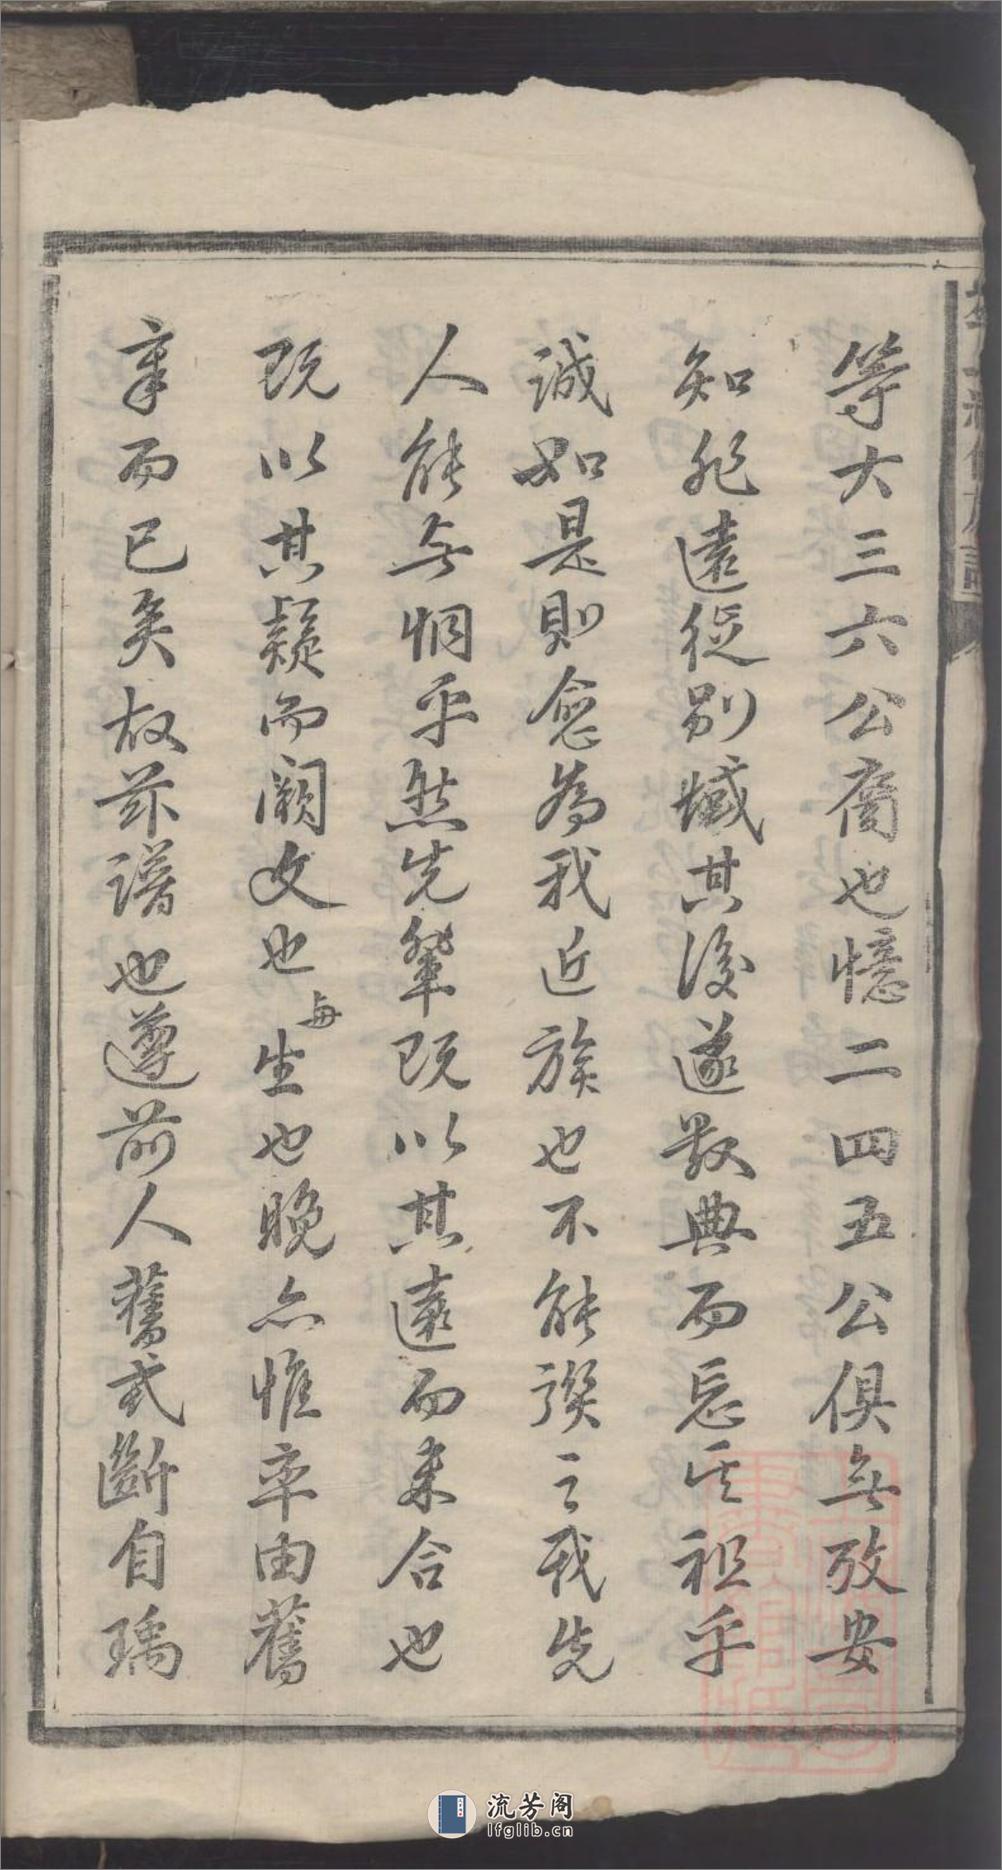 等大三六公裔也憶二四五公俱無攷安
知非遠從別緘其後遂數典而忘其祖乎
誠如是則愈為我近族也不能譔之我先
人能無恫乎然先輩既以其遠而未合也
既以其疑而闕文也每生也晚亦惟率由舊
章而已矣故茲譜也遵前人舊式斷自瑀
流芳阁
lfglib.cn